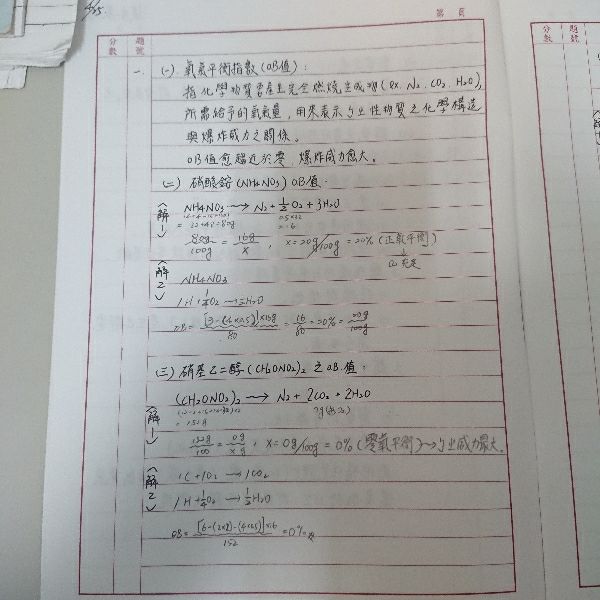 第 頁
分數 題號
一、(一) 氧氣平衡指數(OB值):
指化學物質若產生完全燃燒生成物(ex. N2、CO2、H2O),
所需給予的氧氣量,用來表示ㄅㄓ性物質之化學構造
與爆炸威力之關係。
OB值愈趨近於零,爆炸威力愈大。
(二) 硝酸銨(NH4NO3) OB值:
〈解1〉 NH4NO3 → N2 + 1/2 O2 + 3H2O
= 80g 0.5×32
= 16
80g/100g = 16g/x , x = 20g/100g = 20% (正氧平衡)
O2充足
〈解2〉 NH4NO3
1H + 1/4 O2 → 1/2 H2O
OB = [3-(4×0.5)]×16g / 80 = 16/80 = 20% = 20g/100g
(三) 硝基乙二醇(CH2ONO2)2 之OB值:
〈解1〉 (CH2ONO2)2 → N2 + 2CO2 + 2H2O
= 152g
152g/100 = 0g/x g , x = 0g/100g = 0% (零氧平衡) → ㄅㄓ威力最大。
〈解2〉 1C + 1O2 → 1CO2
1H + 1/4 O2 → 1/2 H2O
OB = [6-(2×2)-(4×0.5)]×16 / 152 = 0%